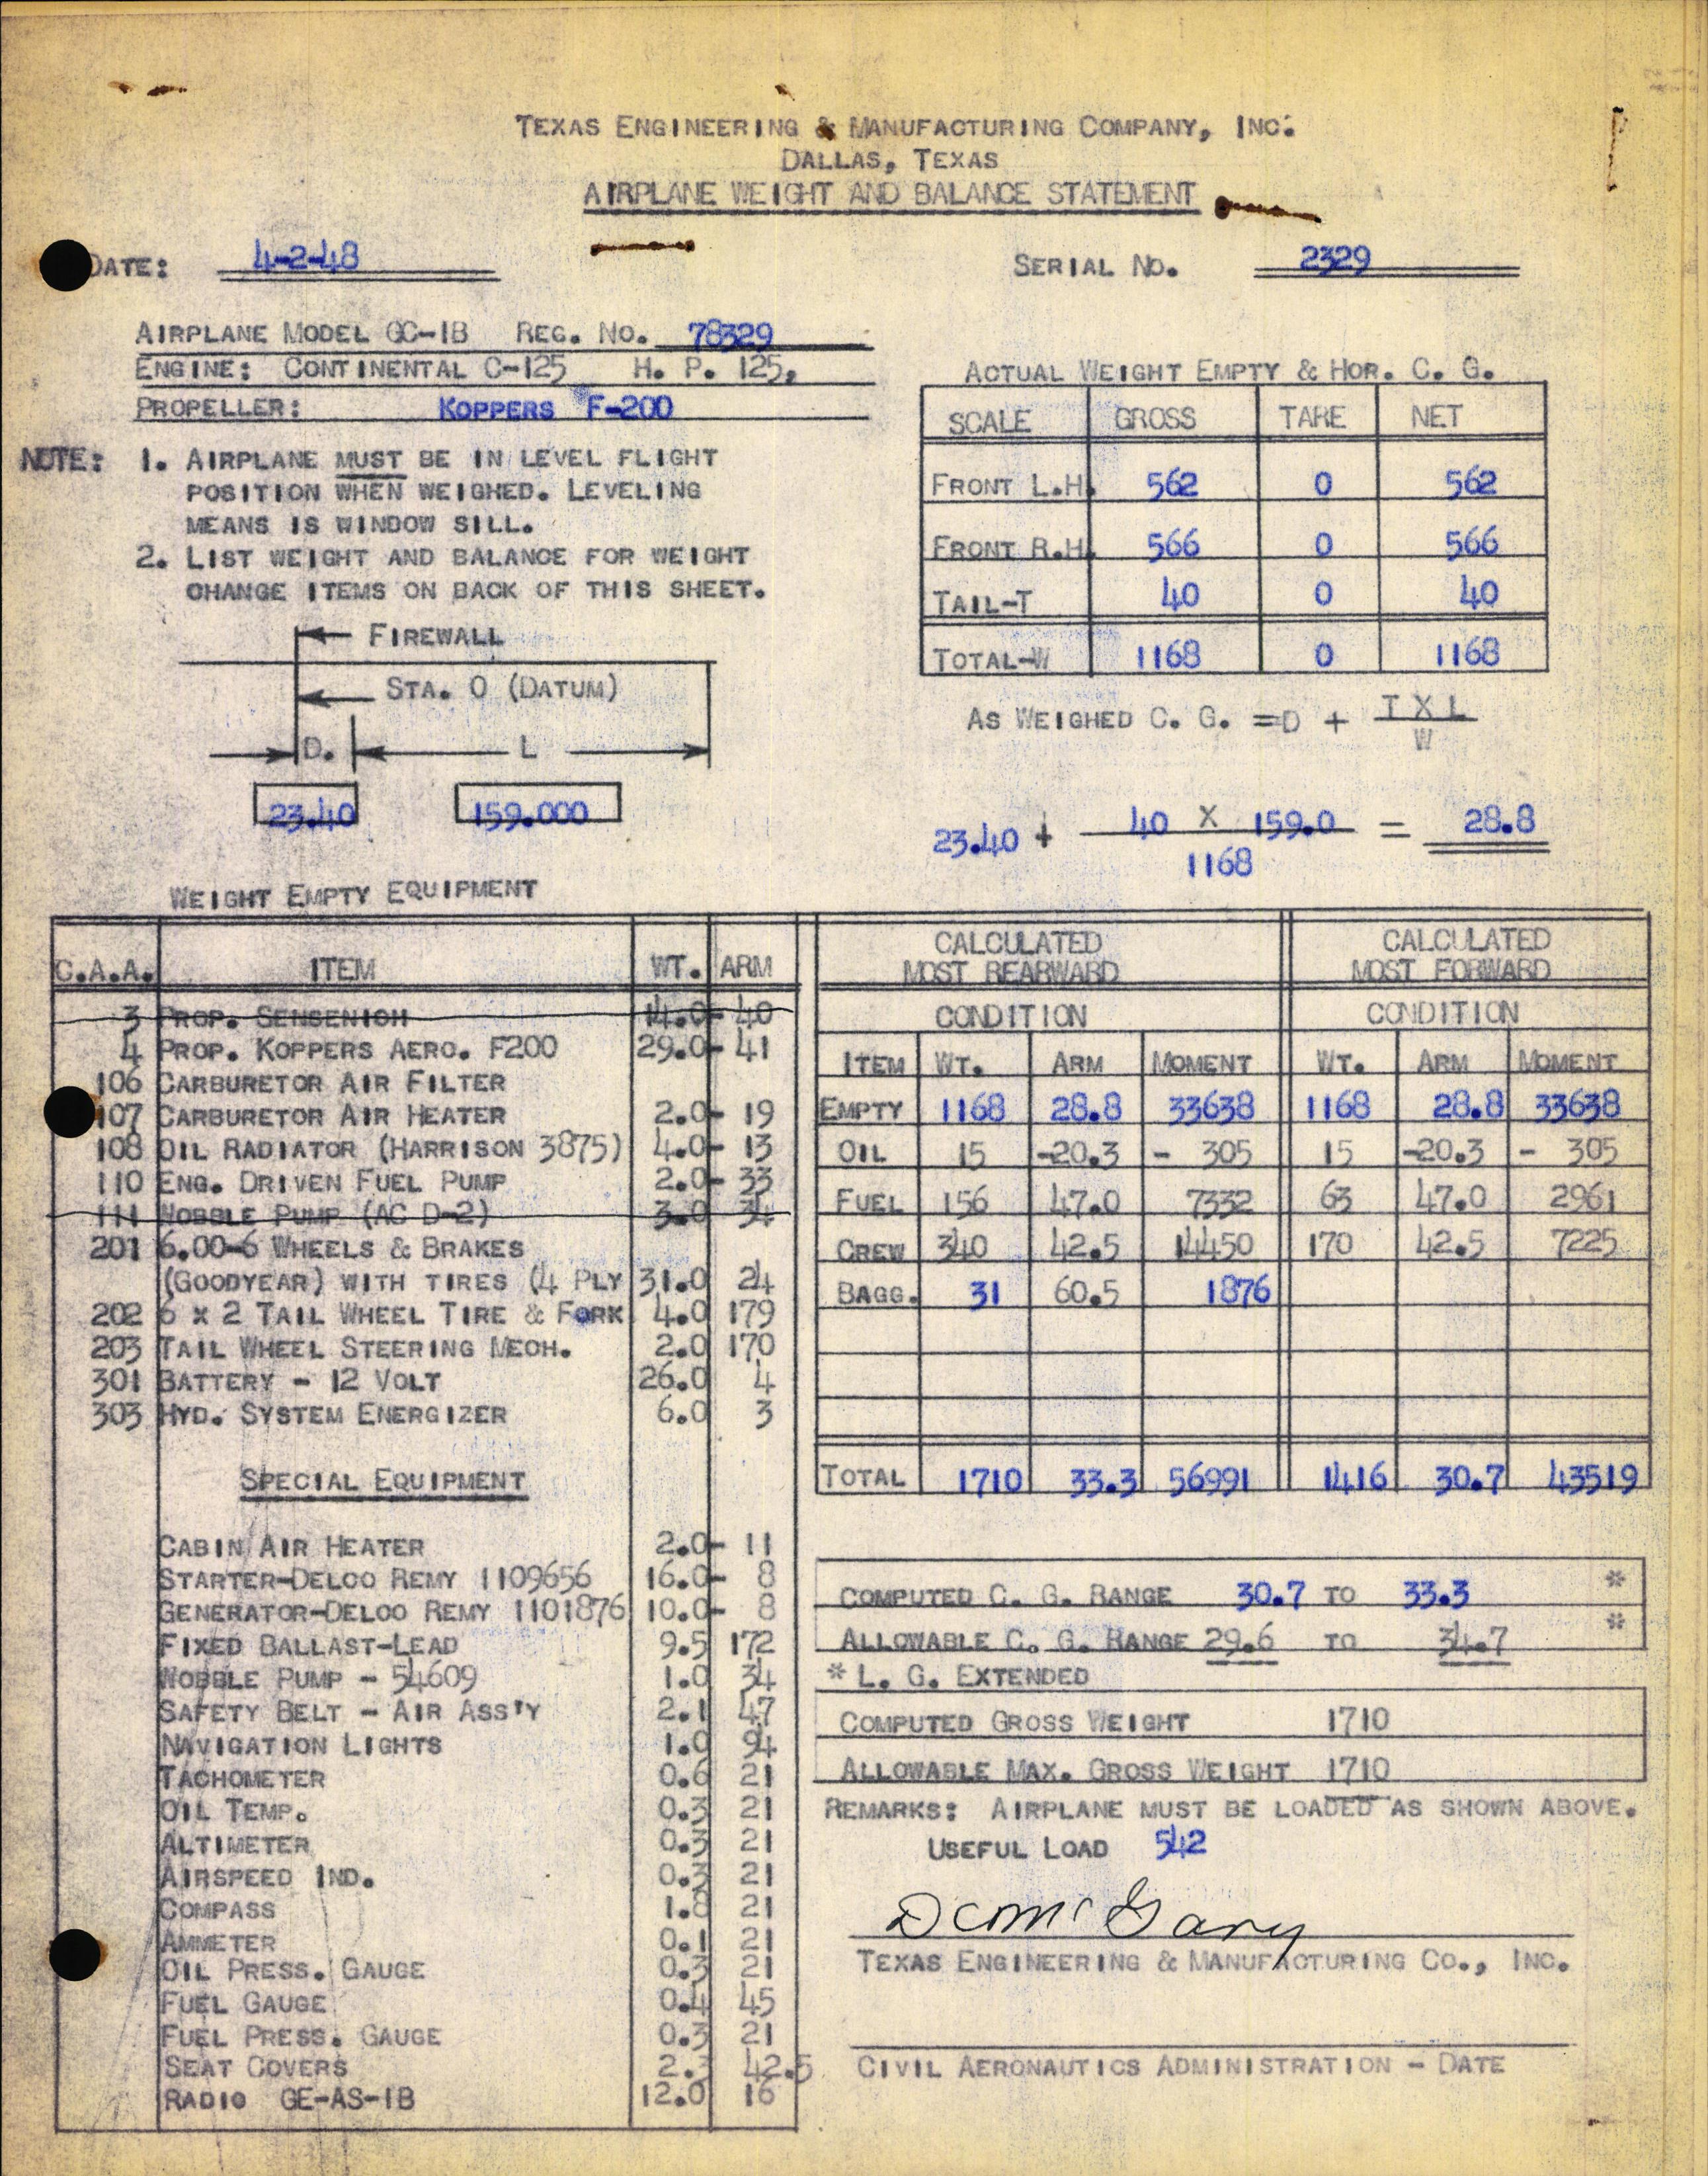 TEXAS ENGINEERING & MANUFACTURING COMPANY, INC.
DALLAS, TEXAS
AIRPLANE WEIGHT AND BALANCE STATEMENT
DATE: 4-2-48 SERIAL NO. 2329
AIRPLANE MODEL GC-1B REG. NO. 78329
ENGINE: CONTINENTAL C-125 H. P. 125,
PROPELLER: KOPPERS F-200
NOTE: 1. AIRPLANE MUST BE IN LEVEL FLIGHT
POSITION WHEN WEIGHED. LEVELING
MEANS IS WINDOW SILL.
2. LIST WEIGHT AND BALANCE FOR WEIGHT
CHANGE ITEMS ON BACK OF THIS SHEET.
FIREWALL
STA. 0 (DATUM)
D. L
23.40 159.000
ACTUAL WEIGHT EMPTY & HOR. C. G.
SCALE GROSS TARE NET
FRONT L.H. 562 0 562
FRONT R.H. 566 0 566
TAIL-T 40 0 40
TOTAL-W 1168 0 1168
AS WEIGHED C. G. =D + T X L
W
23.40 + 40 X 159.0 = 28.8
1168
WEIGHT EMPTY EQUIPMENT
C.A.A. ITEM WT. ARM
3 PROP. SENSENICH 14.0- 40
4 PROP. KOPPERS AERO. F200 29.0- 41
106 CARBURETOR AIR FILTER
107 CARBURETOR AIR HEATER 2.0- 19
108 OIL RADIATOR (HARRISON 3875) 4.0- 13
110 ENG. DRIVEN FUEL PUMP 2.0- 33
111 WOBBLE PUMP (AC D-2) 3.0 34
201 6.00-6 WHEELS & BRAKES
(GOODYEAR) WITH TIRES (4 PLY 31.0 24
202 6 X 2 TAIL WHEEL TIRE & FORK 4.0 179
203 TAIL WHEEL STEERING MECH. 2.0 170
301 BATTERY - 12 VOLT 26.0 4
303 HYD. SYSTEM ENERGIZER 6.0 3
SPECIAL EQUIPMENT
CABIN AIR HEATER 2.0- 11
STARTER-DELCO REMY 1109656 16.0- 8
GENERATOR-DELCO REMY 1101876 10.0- 8
FIXED BALLAST-LEAD 9.5 172
WOBBLE PUMP - 54609 1.0 34
SAFETY BELT - AIR ASS'Y 2.1 47
NAVIGATION LIGHTS 1.0 94
TACHOMETER 0.6 21
OIL TEMP. 0.3 21
ALTIMETER 0.3 21
AIRSPEED IND. 0.3 21
COMPASS 1.8 21
AMMETER 0.1 21
OIL PRESS. GAUGE 0.3 21
FUEL GAUGE 0.4 45
FUEL PRESS. GAUGE 0.3 21
SEAT COVERS 2.3 42.5
RADIO GE-AS-1B 12.0 16
CALCULATED CALCULATED
MOST REARWARD MOST FORWARD
CONDITION CONDITION
ITEM WT. ARM MOMENT WT. ARM MOMENT
EMPTY 1168 28.8 33638 1168 28.8 33638
OIL 15 -20.3 - 305 15 -20.3 - 305
FUEL 156 47.0 7332 63 47.0 2961
CREW 340 42.5 14450 170 42.5 7225
BAGG. 31 60.5 1876
TOTAL 1710 33.3 56991 1416 30.7 43519
COMPUTED C. G. RANGE 30.7 TO 33.3 *
ALLOWABLE C. G. RANGE 29.6 TO 34.7 *
* L. G. EXTENDED
COMPUTED GROSS WEIGHT 1710
ALLOWABLE MAX. GROSS WEIGHT 1710
REMARKS: AIRPLANE MUST BE LOADED AS SHOWN ABOVE.
USEFUL LOAD 542
DCMcGary
TEXAS ENGINEERING & MANUFACTURING CO., INC.
CIVIL AERONAUTICS ADMINISTRATION - DATE